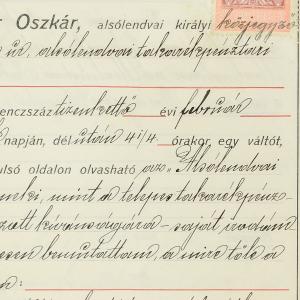 r Oszkár, alsólendvai királyi közjegyző
úr, alsólendvai takarékpénztári
enczszáz tizenkettő évi február
napján, délután 4 1/4 órakor, egy váltót,
ulsó oldalon olvasható az „Alsólendvai
enki, mint a telepes takarékpénz-
zett kívánságára – saját irodám
esen bemutattam, a mire tőle a
n: